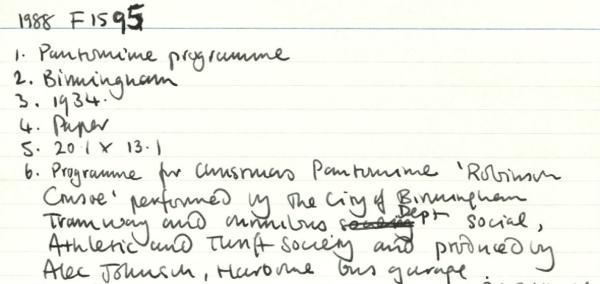 1988 F1595
1. Pantomime programme
2. Birmingham
3. 1934.
4. Paper
5. 20.1 x 13.1
6. Programme for Christmas Pantomime 'Robinson
Crusoe' performed by the City of Birmingham
Tramway and omnibus Dept social,
Athletic and Thrift Society and produced by
Alec Johnson, Harborne bus garage.